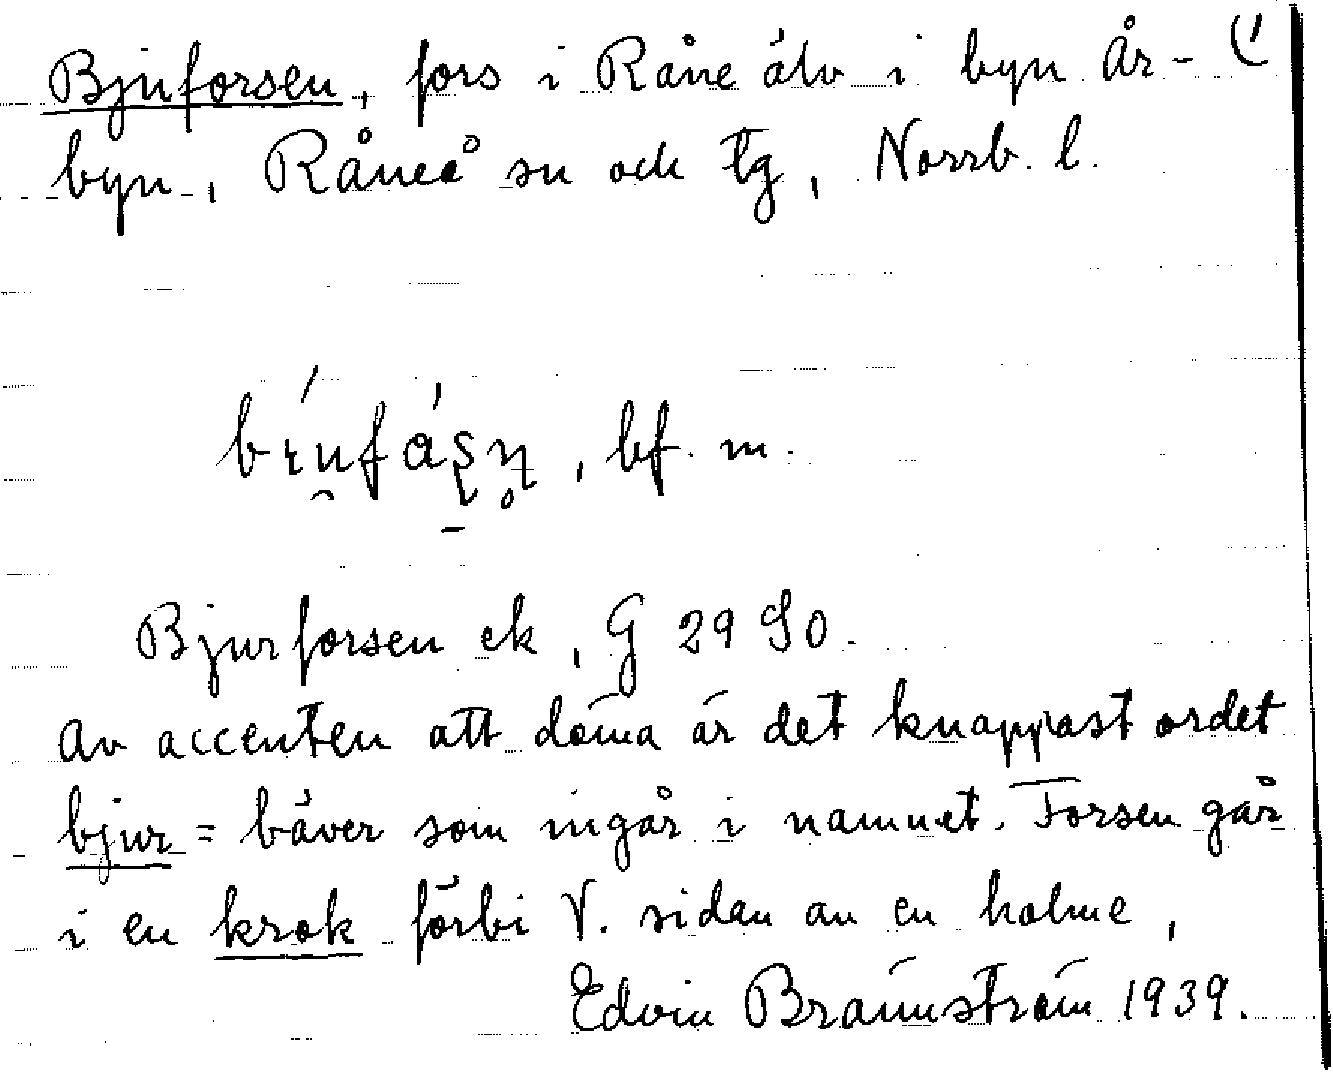 Bjuforsen, fors i Råne älv i byn År- (1
byn, Råneå sn och tg, Norrb. l.
bf. m.
Bjurforsen ek, G 29 SO.
Av accenten att döma är det knappast ordet
bjur = bäver som ingår i namnet. Forsen går
i en krok förbi V. sidan av en holme,
Edvin Brännström 1939.